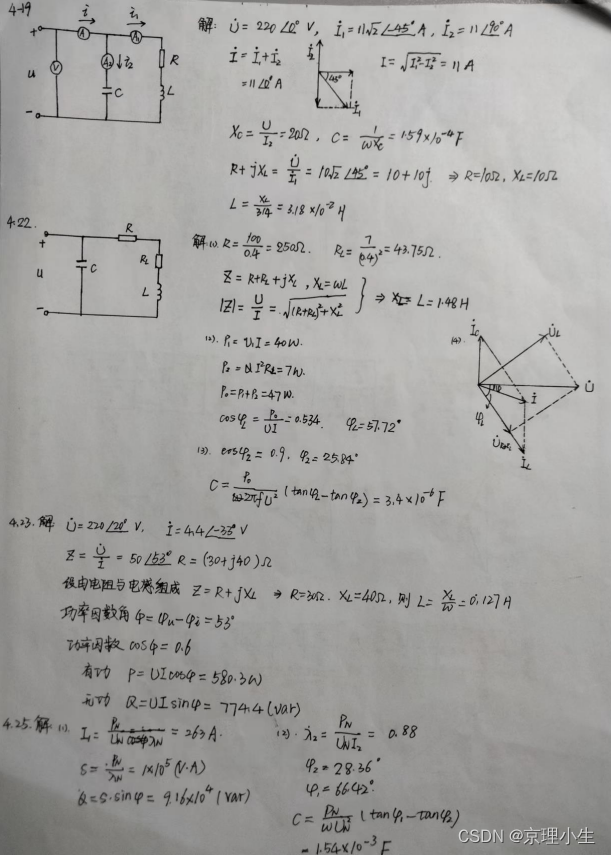 4-19
İ
İ₁
A
A₁
A₂ ↓İ₂
V
u
R
L
C
解: U̇ = 220∠0° V, İ₁ = 11√2∠-45° A, İ₂ = 11∠90° A
İ = İ₁+İ₂
= 11∠0° A
İ₂
45°
İ₁
I = √(I₁²-I₂²) = 11 A
Xc = U/I₂ = 20Ω, C = 1/(ωXc) = 1.59×10⁻⁴ F
R + jXL = U̇/İ₁ = 10√2∠45° = 10+10j ⇒ R=10Ω, XL=10Ω
L = XL/314 = 3.18×10⁻² H
4.22.
R
u
C
RL
L
解(1). R = 100/0.4 = 250Ω. RL = 7/(0.4)² = 43.75Ω.
Z = R+RL+jXL, XL=ωL
|Z| = U/I = √((R+RL)²+XL²) } ⇒ L = 1.48H
(2). P₁ = U₁I = 40W.
P₂ = I²RL = 7W.
P₀ = P₁+P₂ = 47W.
cosφL = P₀/UI = 0.534. φL = 57.72°
(3). cosφ₂ = 0.9, φ₂ = 25.84°
C = P₀/2πfU² (tanφL-tanφ₂) = 3.4×10⁻⁶ F
(4).
İc
U̇L
U̇
İ
φL
İL
4.23. 解 U̇ = 220∠20° V, İ = 4.4∠-33° V
Z = U̇/İ = 50∠53° R = (30+j40)Ω
设由电阻与电感组成 Z = R+jXL ⇒ R=30Ω. XL=40Ω, 则 L = XL/ω = 0.127H
功率因数角 φ = φu-φi = 53°
功率因数 cosφ = 0.6
有功 P = UIcosφ = 580.3W
无功 Q = UIsinφ = 774.4 (var)
4.25. 解(1). I₁ = PN/UNλN = 263A.
S = PN/λN = 1×10⁵ (V·A)
Q = S·sinφ = 9.16×10⁴ (var)
(2). λ₂ = PN/UNI₂ = 0.88
φ₂ = 28.36°
φ₁ = 66.42°
C = PN/ωUN² (tanφ₁-tanφ₂)
= 1.54×10⁻³ F
CSDN @京理小生